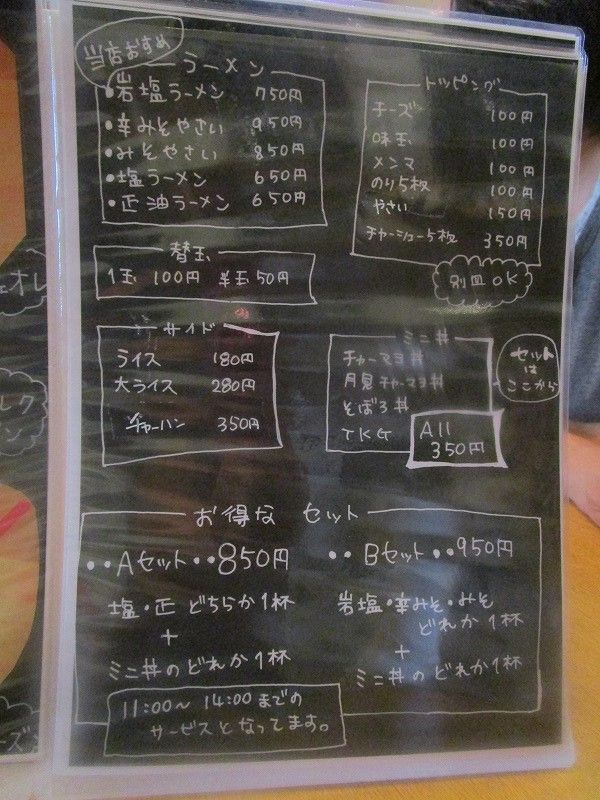 当店おすすめ
ラーメン
•岩塩ラーメン 750円
•辛みそやさい 950円
•みそやさい 850円
•塩ラーメン 650円
•正油ラーメン 650円
トッピング
チーズ 100円
味玉 100円
メンマ 100円
のり5枚 100円
やさい 150円
チャーシュー5枚 350円
別皿OK
替玉
1玉 100円 半玉50円
サイド
ライス 180円
大ライス 280円
半チャーハン 350円
ミニ丼
チャーマヨ丼
月見チャーマヨ丼
そぼろ丼
TKG
All
350円
セット
は
ここから
お得な セット
••Aセット••850円
塩・正 どちらか1杯
+
ミニ丼のどれか1杯
••Bセット••950円
岩塩・辛みそ・みそ
どれか1杯
+
ミニ丼のどれか1杯
11:00〜14:00までの
サービスとなってます。